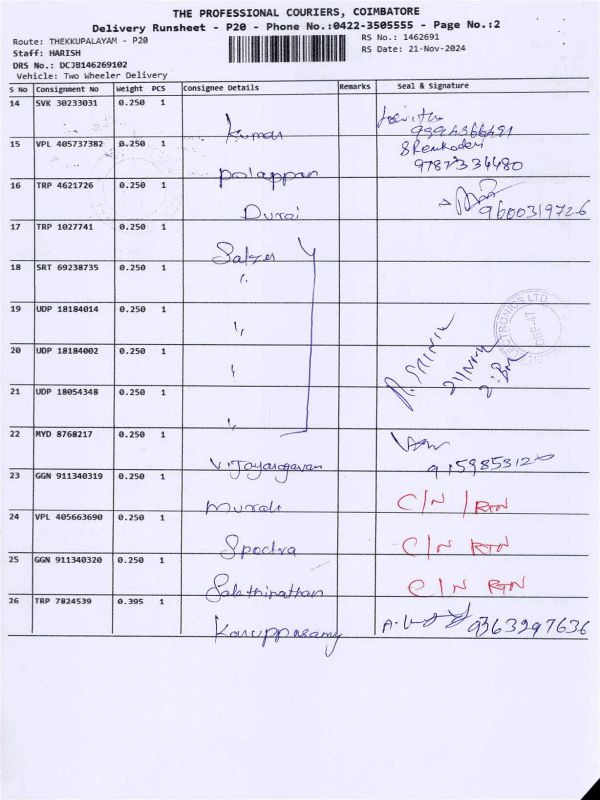 THE PROFESSIONAL COURIERS, COIMBATORE
Delivery Runsheet - P20 - Phone No.:0422-3505555 - Page No.:2
Route: THEKKUPALAYAM - P20 RS No.: 1462691
Staff: HARISH RS Date: 21-Nov-2024
DRS No.: DCJB146269102
Vehicle: Two Wheeler Delivery
S No Consignment No Weight PCS Consignee Details Remarks Seal & Signature
14 SVK 30233031 0.250 1
Kumar 9994366491
15 VPL 405737382 0.250 1 S Renkadevi
Palappan 9787334480
16 TRP 4621726 0.250 1
Durai 9600319726
17 TRP 1027741 0.250 1
Salzer
18 SRT 69238735 0.250 1
"
19 UDP 18184014 0.250 1
"
20 UDP 18184002 0.250 1
"
21 UDP 18054348 0.250 1
"
R. SRINIV
22 MYD 8768217 0.250 1
9159853120
23 GGN 911340319 0.250 1
Murali C/N / RTN
24 VPL 405663690 0.250 1
Spectra C/N RTN
25 GGN 911340320 0.250 1
Sakthinathan C/N RTN
26 TRP 7824539 0.395 1
Karuppasamy 9363297636